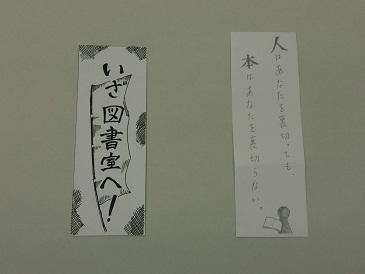 いざ図書室へ！
人はあなたを裏切っても、
本はあなたを裏切らない。